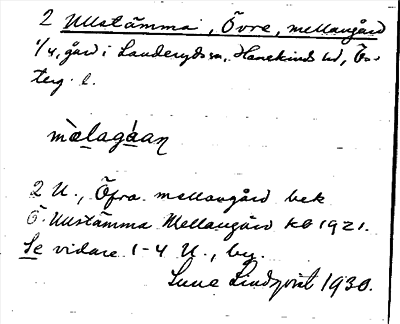 2 Ullstämma, Övre, mellangård
1/4, gård i Landeryds sn, Hanekinds hd, Ös-
terg. l.
mèlagåan
2 U., Öfra mellangård bek
Ö. Ullstämma Mellangård KB 1921.
Se vidare 1-4 U., by.
Sune Lindqvist 1930.